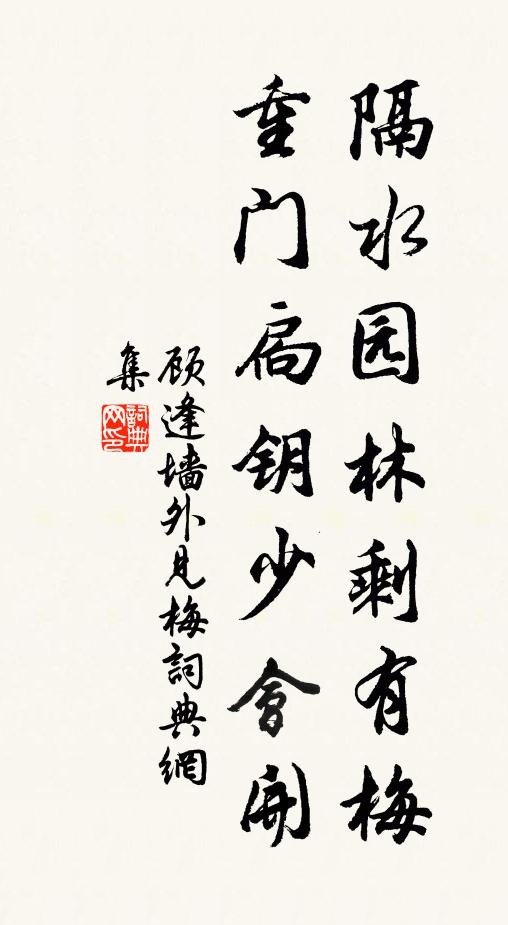 隔水园林剩有梅
重门扃钥少會開
顾逢墙外见梅詞典網
集
詞典网印